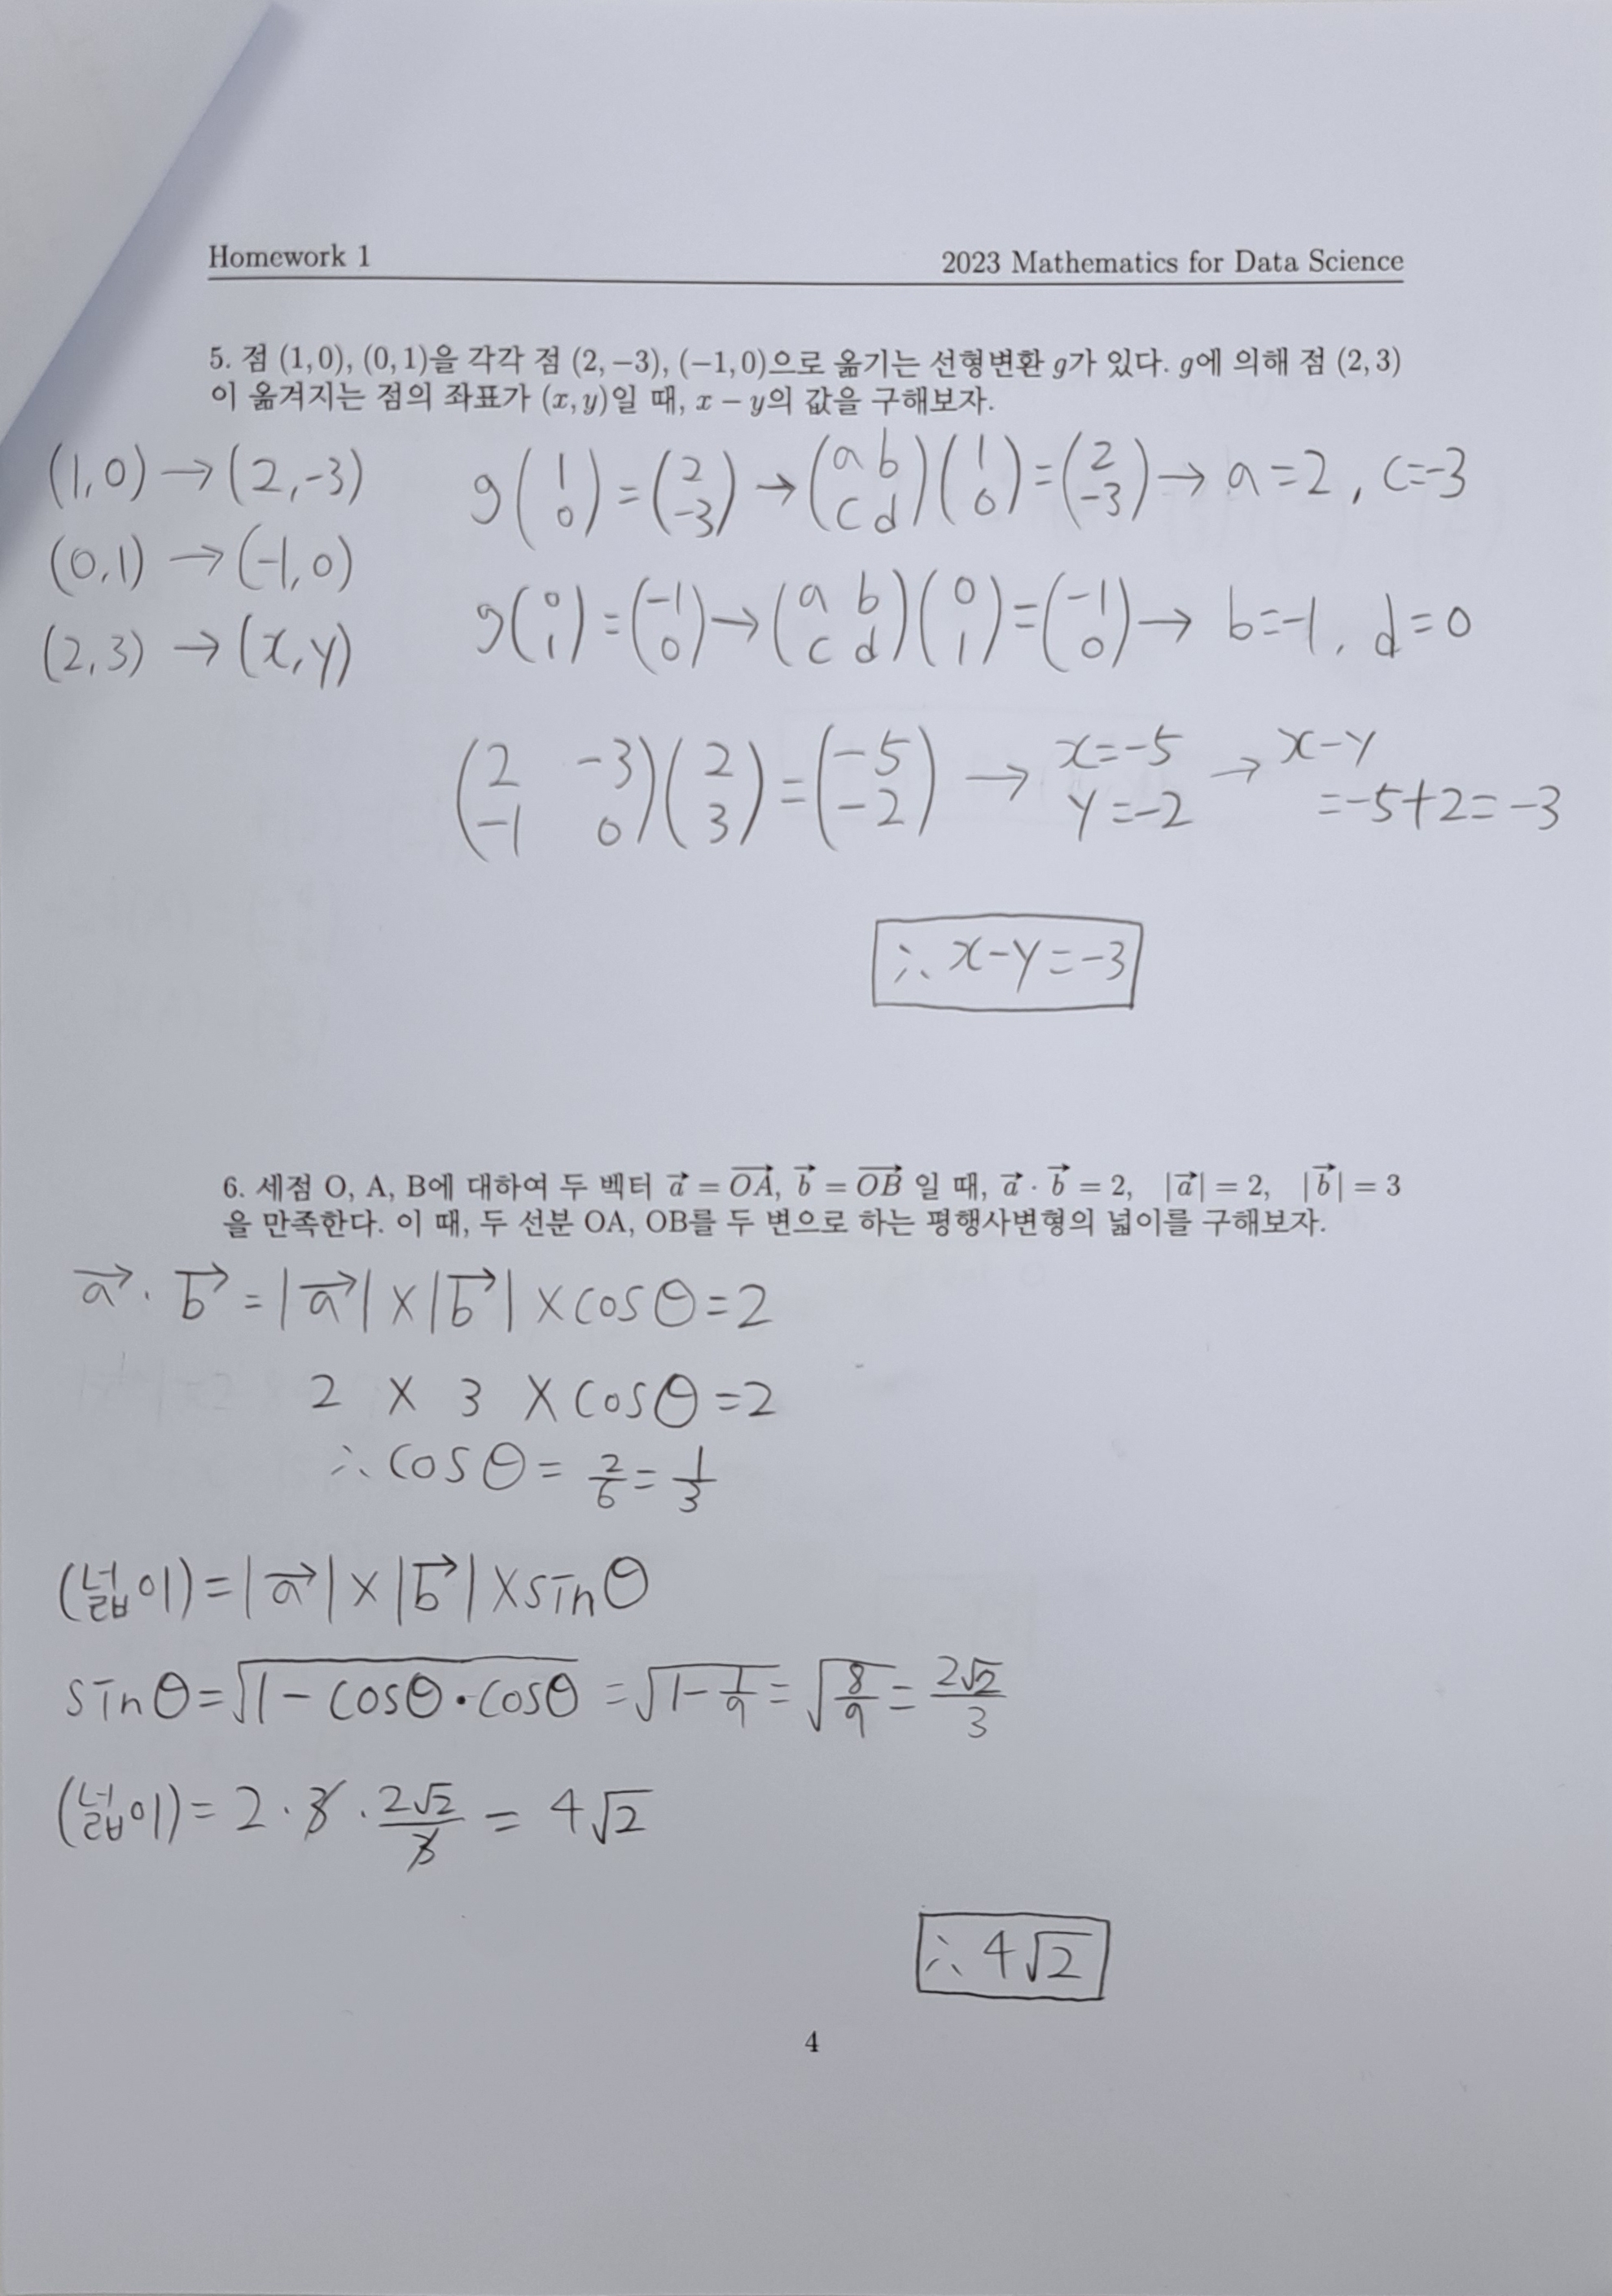 Homework 1 2023 Mathematics for Data Science
5. 점 (1,0), (0,1)을 각각 점 (2,−3), (−1,0)으로 옮기는 선형변환 g가 있다. g에 의해 점 (2,3)
이 옮겨지는 점의 좌표가 (x,y)일 때, x − y의 값을 구해보자.
(1,0) → (2,-3) g(1 0) = (2 -3) → (a b c d)(1 0) = (2 -3) → a=2, c=-3
(0,1) → (-1,0)
g(0 1) = (-1 0) → (a b c d)(0 1) = (-1 0) → b=-1, d=0
(2,3) → (x,y)
(2 -3 -1 0)(2 3) = (-5 -2) → x=-5 y=-2 → x-y
=-5+2=-3
∴ x-y=-3
6. 세점 O, A, B에 대하여 두 벡터 a⃗ = OA⃗, b⃗ = OB⃗ 일 때, a⃗ · b⃗ = 2, |a⃗| = 2, |b⃗| = 3
을 만족한다. 이 때, 두 선분 OA, OB를 두 변으로 하는 평행사변형의 넓이를 구해보자.
a⃗ · b⃗ = |a⃗| × |b⃗| × cosθ = 2
2 × 3 × cosθ = 2
∴ cosθ = 2/6 = 1/3
(넓이) = |a⃗| × |b⃗| × sinθ
sinθ = √(1 - cosθ·cosθ) = √(1-1/9) = √(8/9) = 2√2/3
(넓이) = 2 · 3 · 2√2/3 = 4√2
∴ 4√2
4